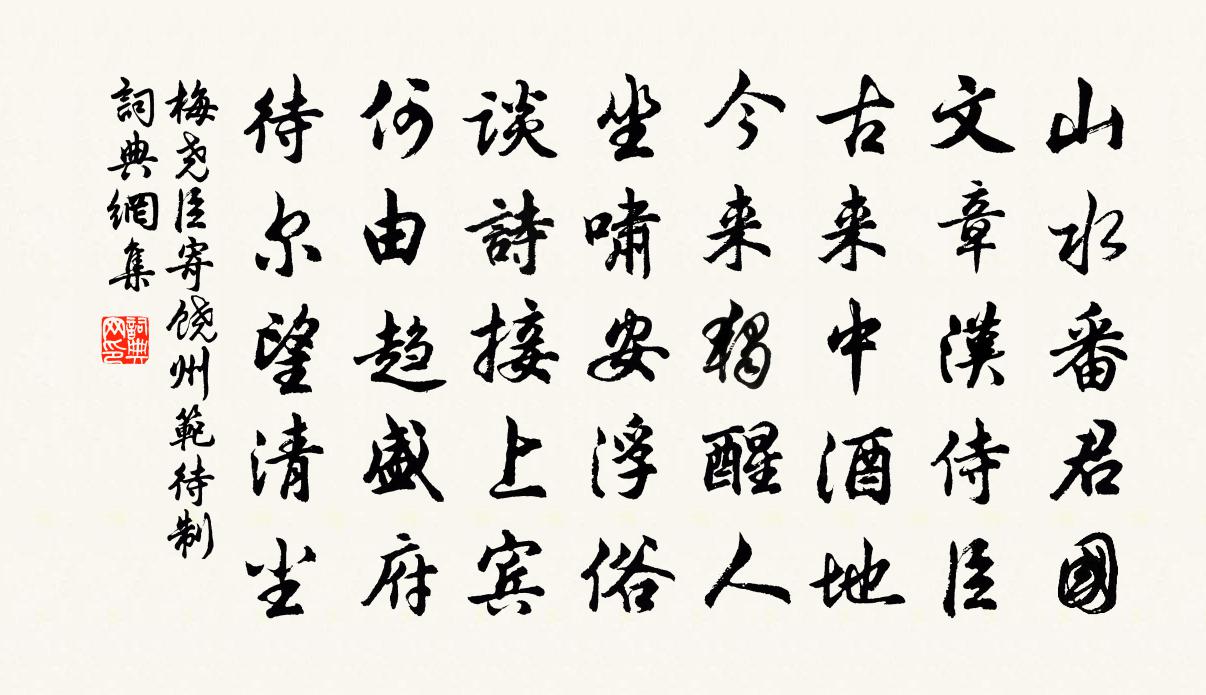 山水番君國
文章漢侍臣
古来中酒地
今来獨醒人
坐嘯安浮俗
谈詩接上宾
何由趋盛府
待尔望清尘
梅尧臣寄饶州範待制
詞典網集
詞典网印